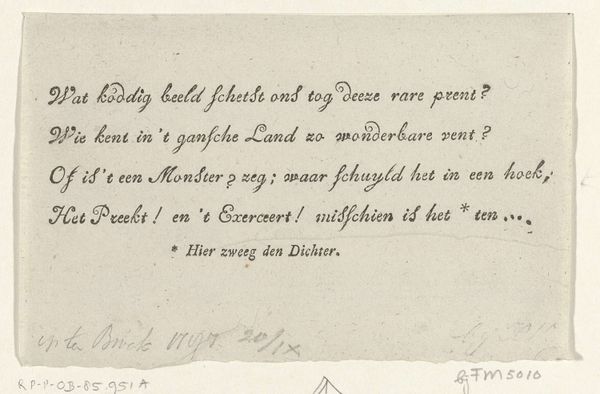 Wat koddig beeld schetst ons tog deeze rare prent?
Wie kent in't gansche Land zo wonderbare vent?
Of is't een Monster? zeg; waar schuyld het in een hoek,
Het Preekt! en 't Exerceert! misschien is het * ten ....
* Hier zweeg den Dichter.
ten Brink 1797 20/IX
RP-P-OB-85.951A
bij FM 5010